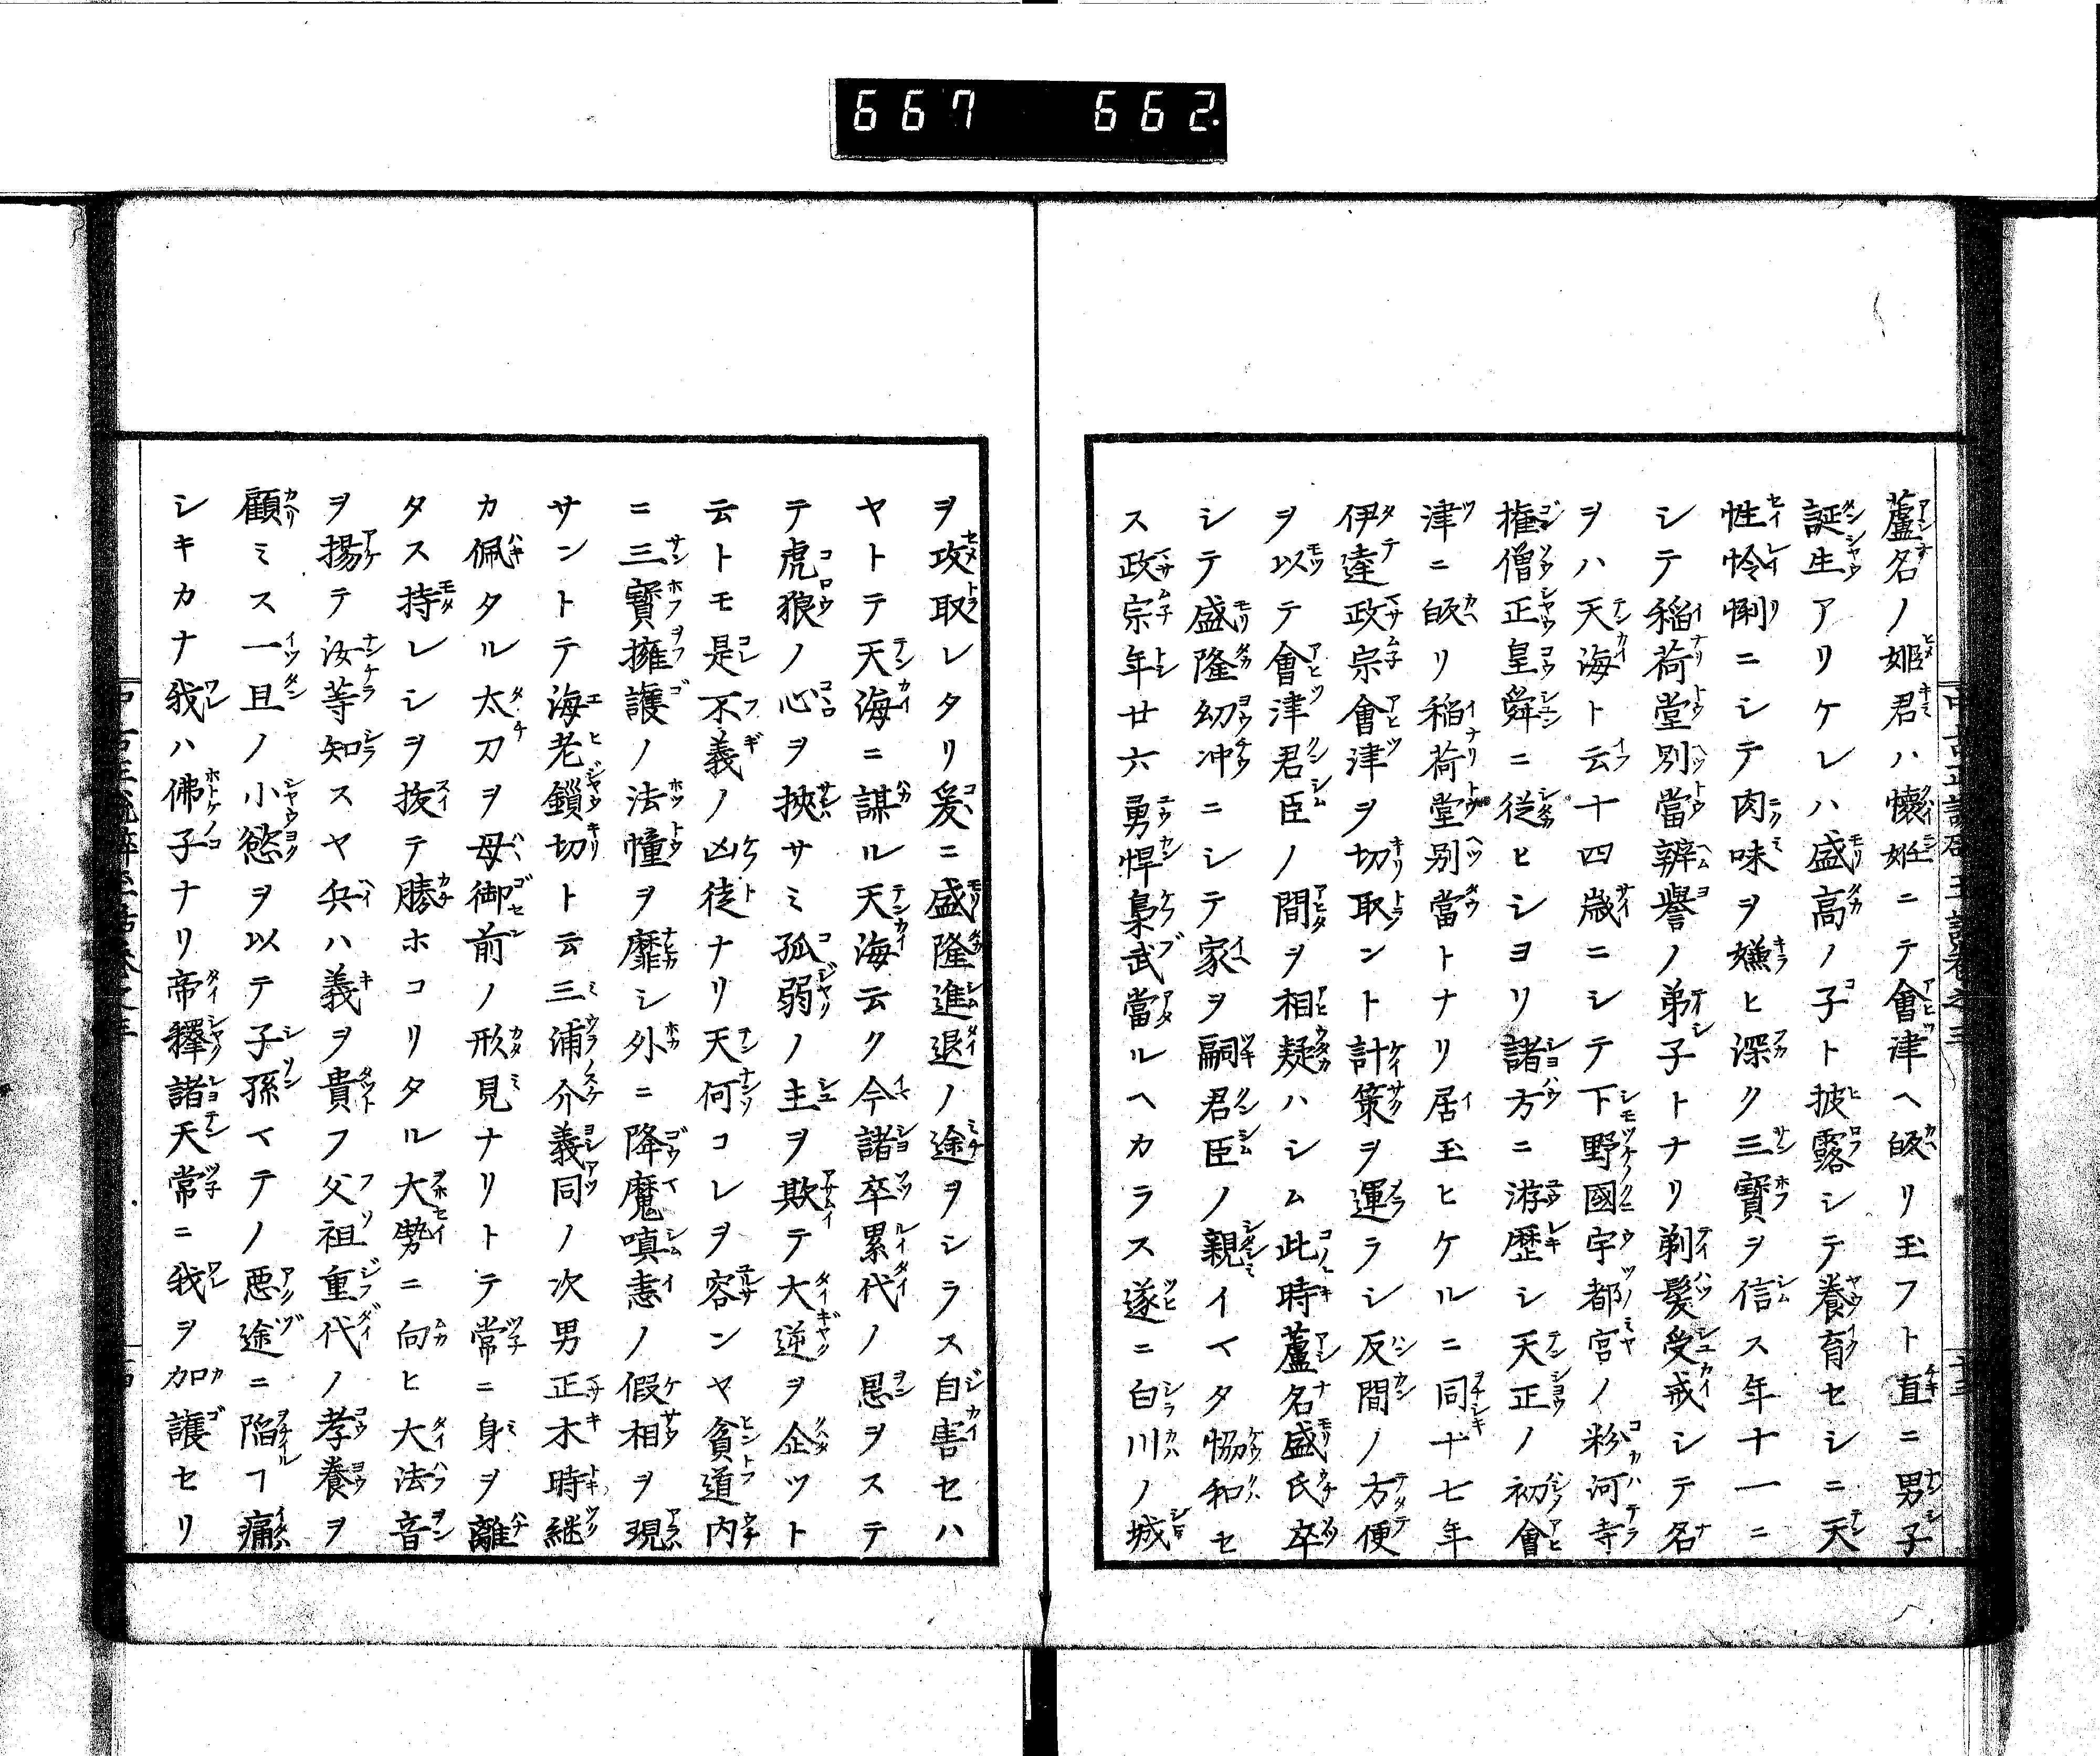 667 662.
蘆名ノ姬君ハ懷姙ニテ會津ヘ皈リ玉フト直ニ男子
誕生アリケレハ盛高ノ子ト披露シテ養育セシニ天
性怜悧ニシテ肉味ヲ嫌ヒ深ク三寶ヲ信ス年十一ニ
シテ稲荷堂別當辨譽ノ弟子トナリ剃髮受戒シテ名
ヲハ天海ト云十四歳ニシテ下野國宇都宮ノ粉河寺
権僧正皇舜ニ従ヒシヨリ諸方ニ游歷シ天正ノ初會
津ニ皈リ稲荷堂別當トナリ居玉ヒケルニ同十七年
伊達政宗會津ヲ切取ント計策ヲ運ラシ反間ノ方便
ヲ以テ會津君臣ノ間ヲ相疑ハシム此時蘆名盛氏卒
シテ盛隆幼冲ニシテ家ヲ嗣君臣ノ親イマタ恊和セ
ス政宗年廿六勇悍梟武當ルヘカラス遂ニ白川ノ城
ヲ攻取レタリ爰ニ盛隆進退ノ途ヲシラス自害セハ
ヤトテ天海ニ謀ル天海云ク今諸卒累代ノ恩ヲステ
テ虎狼ノ心ヲ挾サミ孤弱ノ主ヲ欺テ大逆ヲ企ツト
云トモ是不義ノ凶徒ナリ天何コレヲ容ンヤ貧道内
ニ三寶擁護ノ法幢ヲ靡シ外ニ降魔嗔恚ノ假相ヲ現
サントテ海老鎖切ト云三浦介義同ノ次男正木時継
カ佩タル太刀ヲ母御前ノ形見ナリトテ常ニ身ヲ離
タス持レシヲ抜テ勝ホコリタル大勢ニ向ヒ大法音
ヲ揚テ汝等知スヤ兵ハ義ヲ貴フ父祖重代ノ孝養ヲ
顧ミス一且ノ小慾ヲ以テ子孫マテノ悪途ニ陷フ痛
シキカナ我ハ佛子ナリ帝釋諸天常ニ我ヲ加護セリ